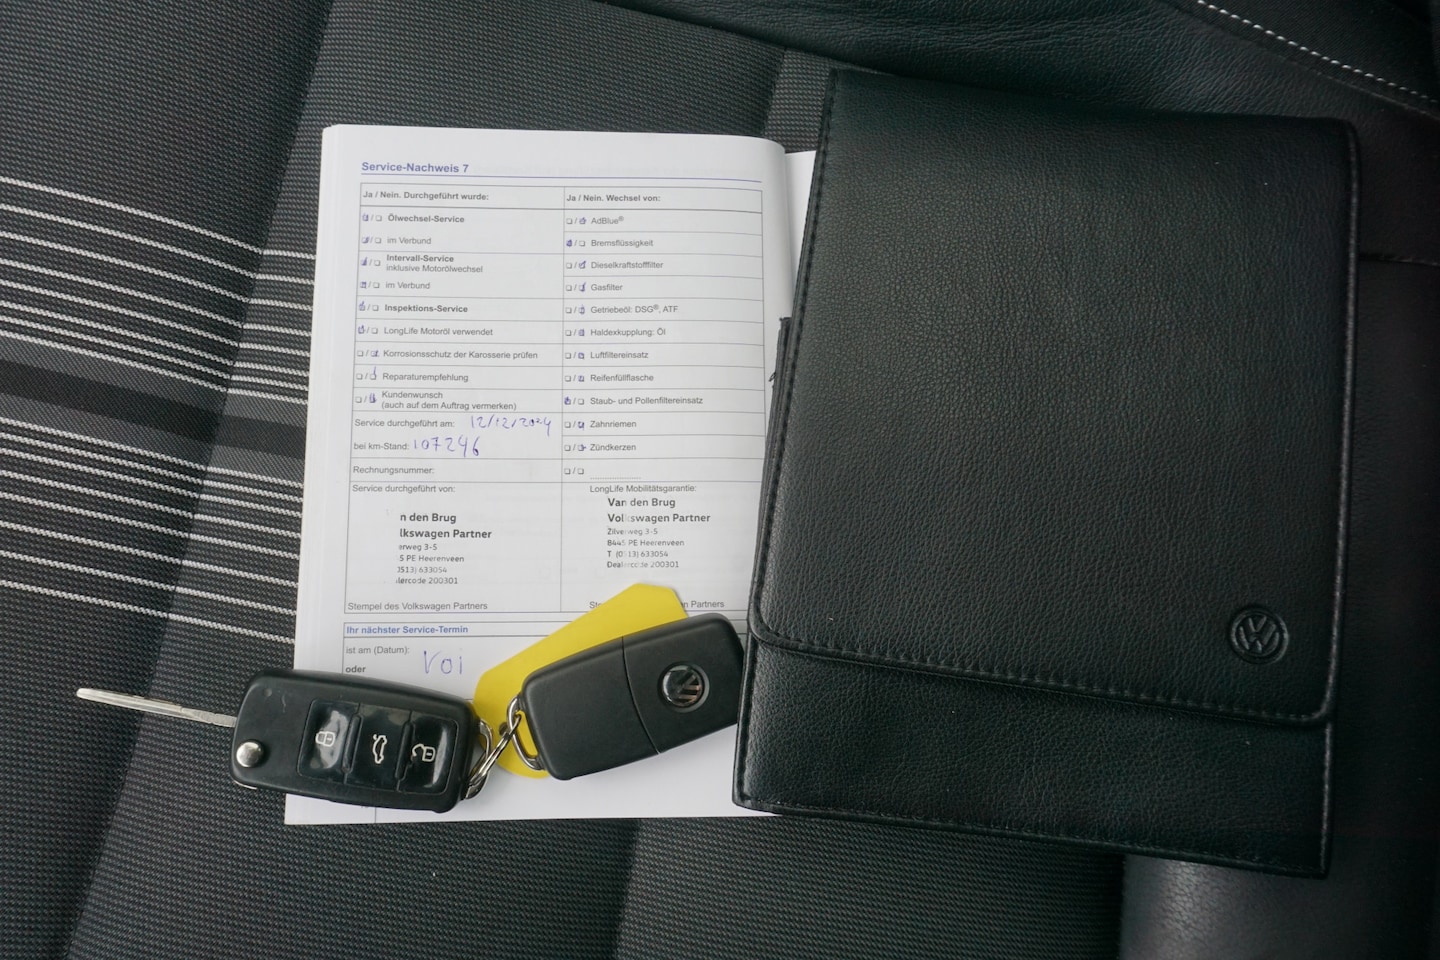 Service-Nachweis 7
Ja / Nein. Durchgeführt wurde:
Ölwechsel-Service
im Verbund
Intervall-Service
inklusive Motorölwechsel
im Verbund
Inspektions-Service
LongLife Motoröl verwendet
Korrosionsschutz der Karosserie prüfen
Reparaturempfehlung
Kundenwunsch
(auch auf dem Auftrag vermerken)
Service durchgeführt am: 12/12/2024
bei km-Stand: 107296
Rechnungsnummer:
Ja / Nein. Wechsel von:
AdBlue®
Bremsflüssigkeit
Dieselkraftstofffilter
Gasfilter
Getriebeöl: DSG®, ATF
Haldexkupplung: Öl
Luftfiltereinsatz
Reifenfüllflasche
Staub- und Pollenfiltereinsatz
Zahnriemen
Zündkerzen
Service durchgeführt von:
n den Brug
lkswagen Partner
erweg 3-5
5 PE Heerenveen
0513) 633054
alercode 200301
Stempel des Volkswagen Partners
LongLife Mobilitätsgarantie:
Van den Brug
Volkswagen Partner
Zilverweg 3-5
8445 PE Heerenveen
T (0513) 633054
Dealercode 200301
St n Partners
Ihr nächster Service-Termin
ist am (Datum): Voi
oder